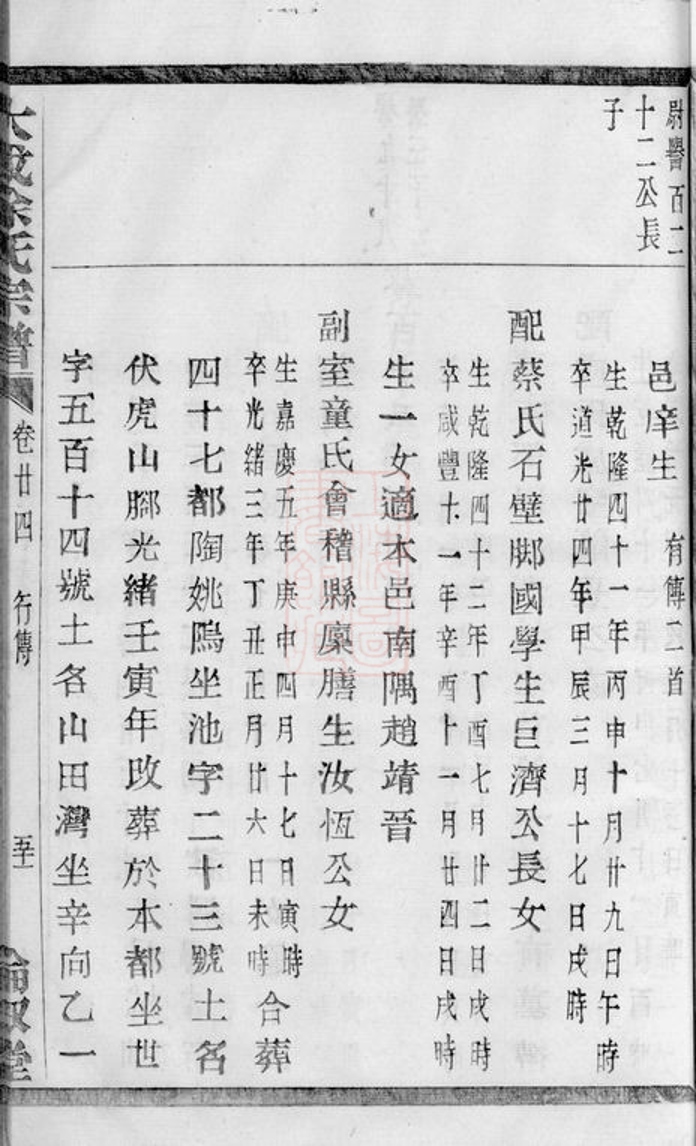 尉譽百二
十二公長
子
邑庠生
有傳二首
生乾隆四十一年丙申十月廿九日午時
卒道光廿四年甲辰三月十七日戌時
配蔡氏石壁脚國學生巨濟公長女
生乾隆四十二年丁酉七月廿二日戌時
卒咸豐十一年辛酉十一月廿四日戌時
生一女適本邑南隅趙靖晉
副室童氏會稽縣廩膳生汝恆公女
生嘉慶五年庚申四月十七日寅時
卒光緒三年丁丑正月廿六日未時
合葬
四十七都陶姚隖坐池字二十三號土名
伏虎山腳光緒壬寅年改葬於本都坐世
字五百十四號土名山田灣坐辛向乙一
徐氏宗譜
卷廿四
行傳
倫敘堂